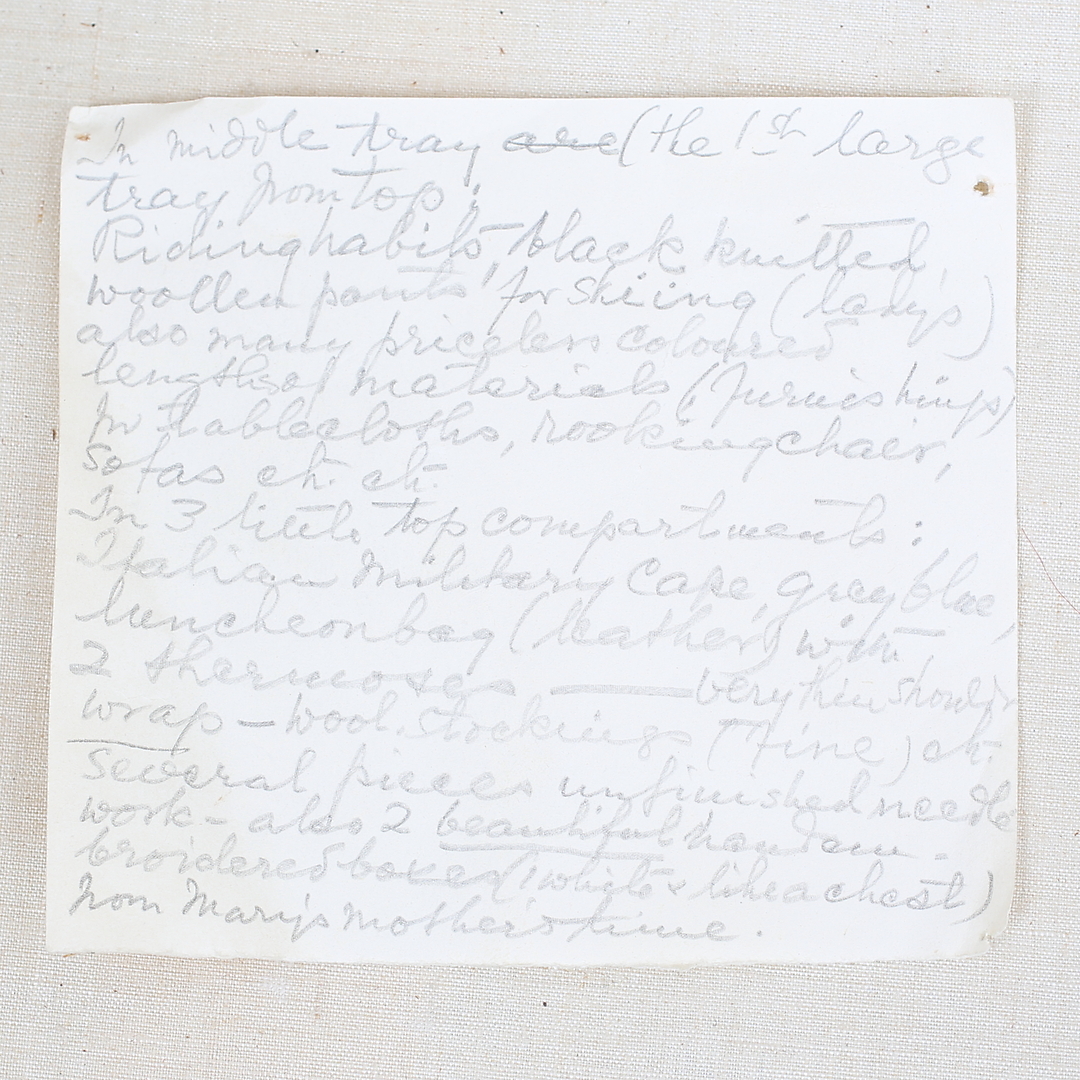 In middle tray are (the 1st large
tray from top:
Ridinghabits, black knitted,
woollen pants for skiing (lady's)
also many priceless coloured
lengths of materials (furnishings)
for tablecloths, rockingchair,
sofas ct. ct.
In 3 little top compartments:
Italian Military Cape, grey blue,
luncheonbag (leather) with
2 thermoses — very thin should
wrap – wool. stockings (fine) ct.
Several pieces unfinished needle
work – also 2 beautiful handem-
broidered boxes (1 white & like a chest)
from Mary's mother's time.